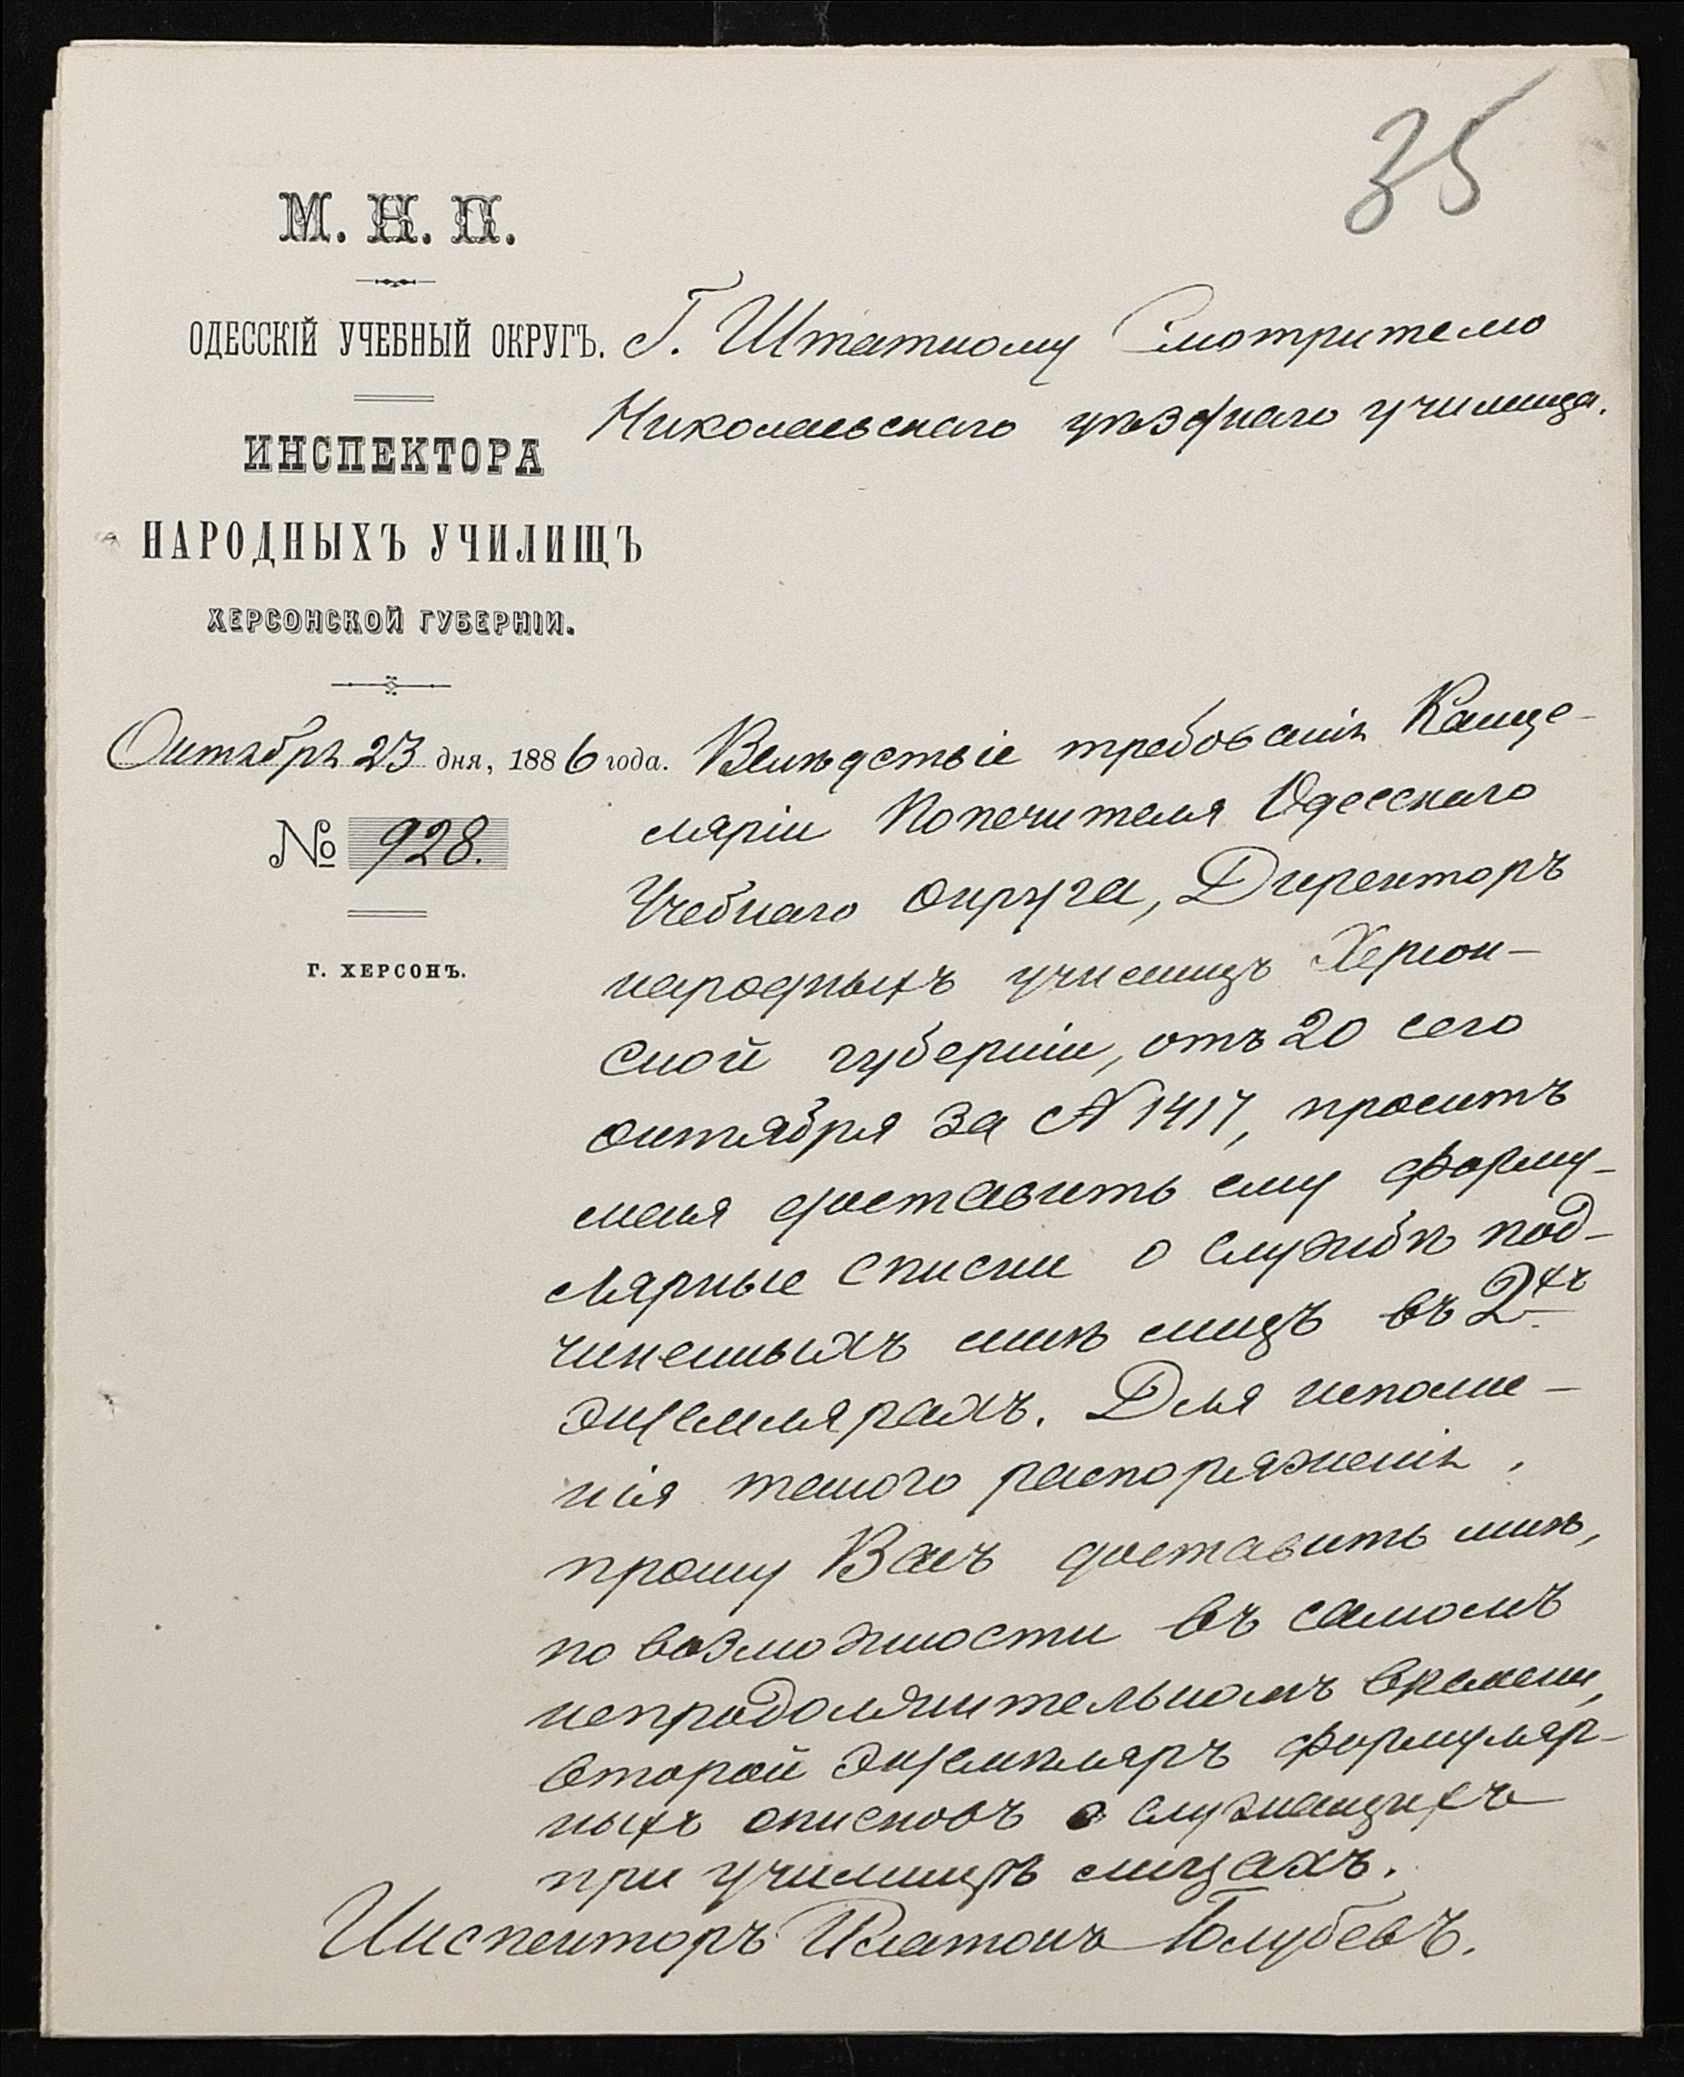 35
М. Н. П.
ОДЕССКІЙ УЧЕБНЫЙ ОКРУГЪ.
ИНСПЕКТОРА
НАРОДНЫХЪ УЧИЛИЩЪ
ХЕРСОНСКОЙ ГУБЕРНІИ.
Октября 23 дня, 1886 года.
№ 928.
Г. ХЕРСОНЪ.
Г. Штатному Смотрителю
Николаевскаго уѣзднаго училища.
Вслѣдствіе требованія Канце-
ляріи Попечителя Одесскаго
Учебнаго Округа, Директоръ
народныхъ училищъ Херсон-
ской губерніи, отъ 20 сего
октября за № 1417, проситъ
меня доставить ему форму-
лярные списки о службѣ под-
чиненныхъ мнѣ лицъ въ 2хъ
экземплярахъ. Для исполне-
нія такого распоряженія,
прошу Васъ доставить мнѣ,
по возможности въ самомъ
непродолжительномъ времени,
второй экземпляръ формуляр-
ныхъ списковъ о служащихъ
при училищѣ лицахъ.
Инспекторъ Платонъ Голубевъ.